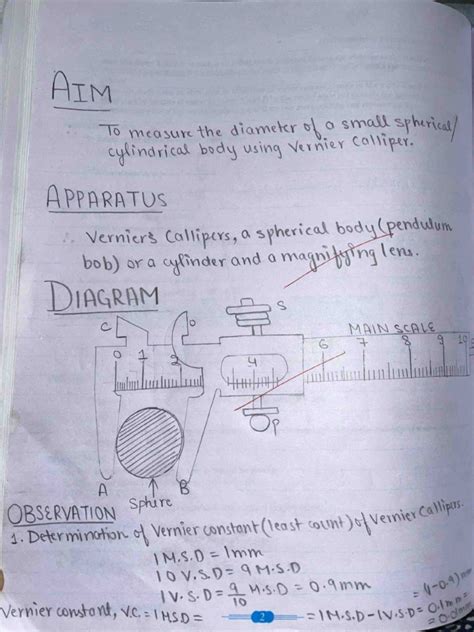 AIM
∴ To measure the diameter of a small spherical/
cylindrical body using Vernier Calliper.
APPARATUS
∴ Vernier's Callipers, a spherical body (pendulum
bob) or a cylinder and a magnifying lens.
DIAGRAM
C D S
MAIN SCALE
0 1 2 4 6 7 8 9 10
P
A B
Sphere
OBSERVATION
1. Determination of Vernier constant (least count) of Vernier Callipers.
1 M.S.D = 1mm
10 V.S.D = 9 M.S.D
1 V.S.D = 9/10 M.S.D = 0.9mm
Vernier constant, V.C. = 1 MSD = = 1 M.S.D - 1 V.S.D
= (1-0.9) mm
= 0.1mm
2